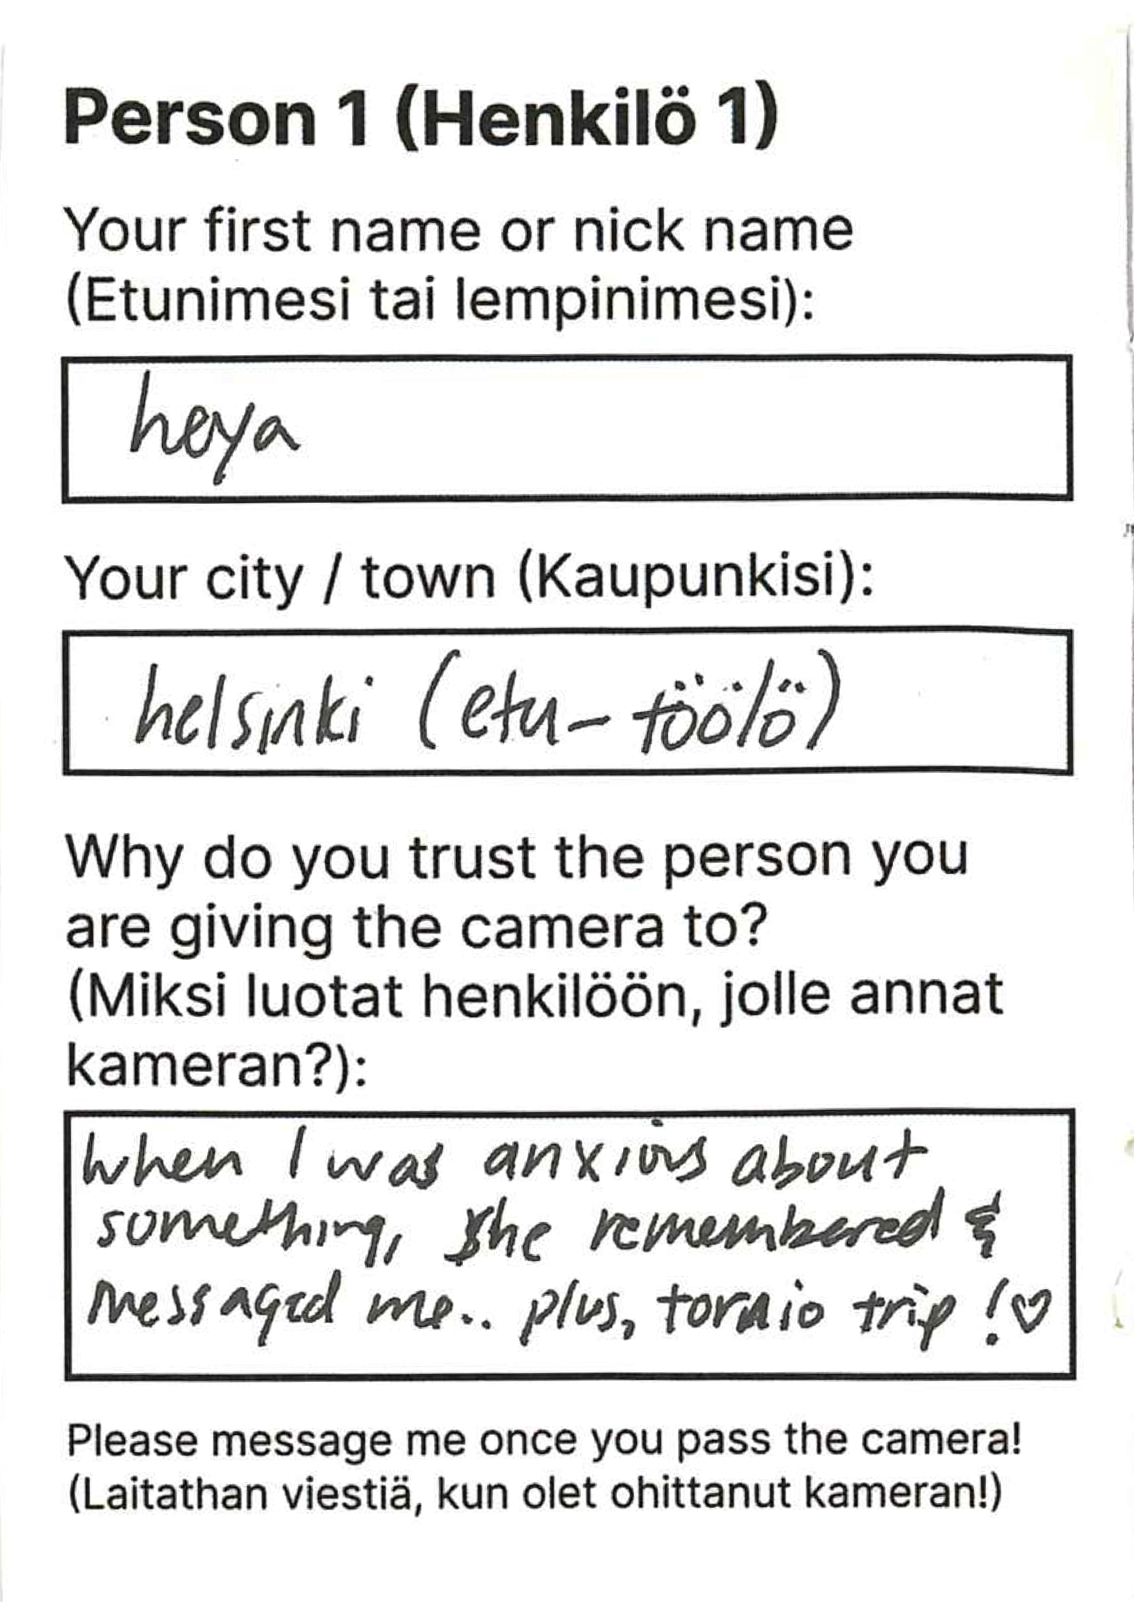 Person 1 (Henkilö 1)
Your first name or nick name
(Etunimesi tai lempinimesi):
heya
Your city / town (Kaupunkisi):
helsinki (etu-töölö)
Why do you trust the person you
are giving the camera to?
(Miksi luotat henkilöön, jolle annat
kameran?):
when I was anxious about
something, she remembered &
messaged me.. plus, tornio trip!♡
Please message me once you pass the camera!
(Laitathan viestiä, kun olet ohittanut kameran!)